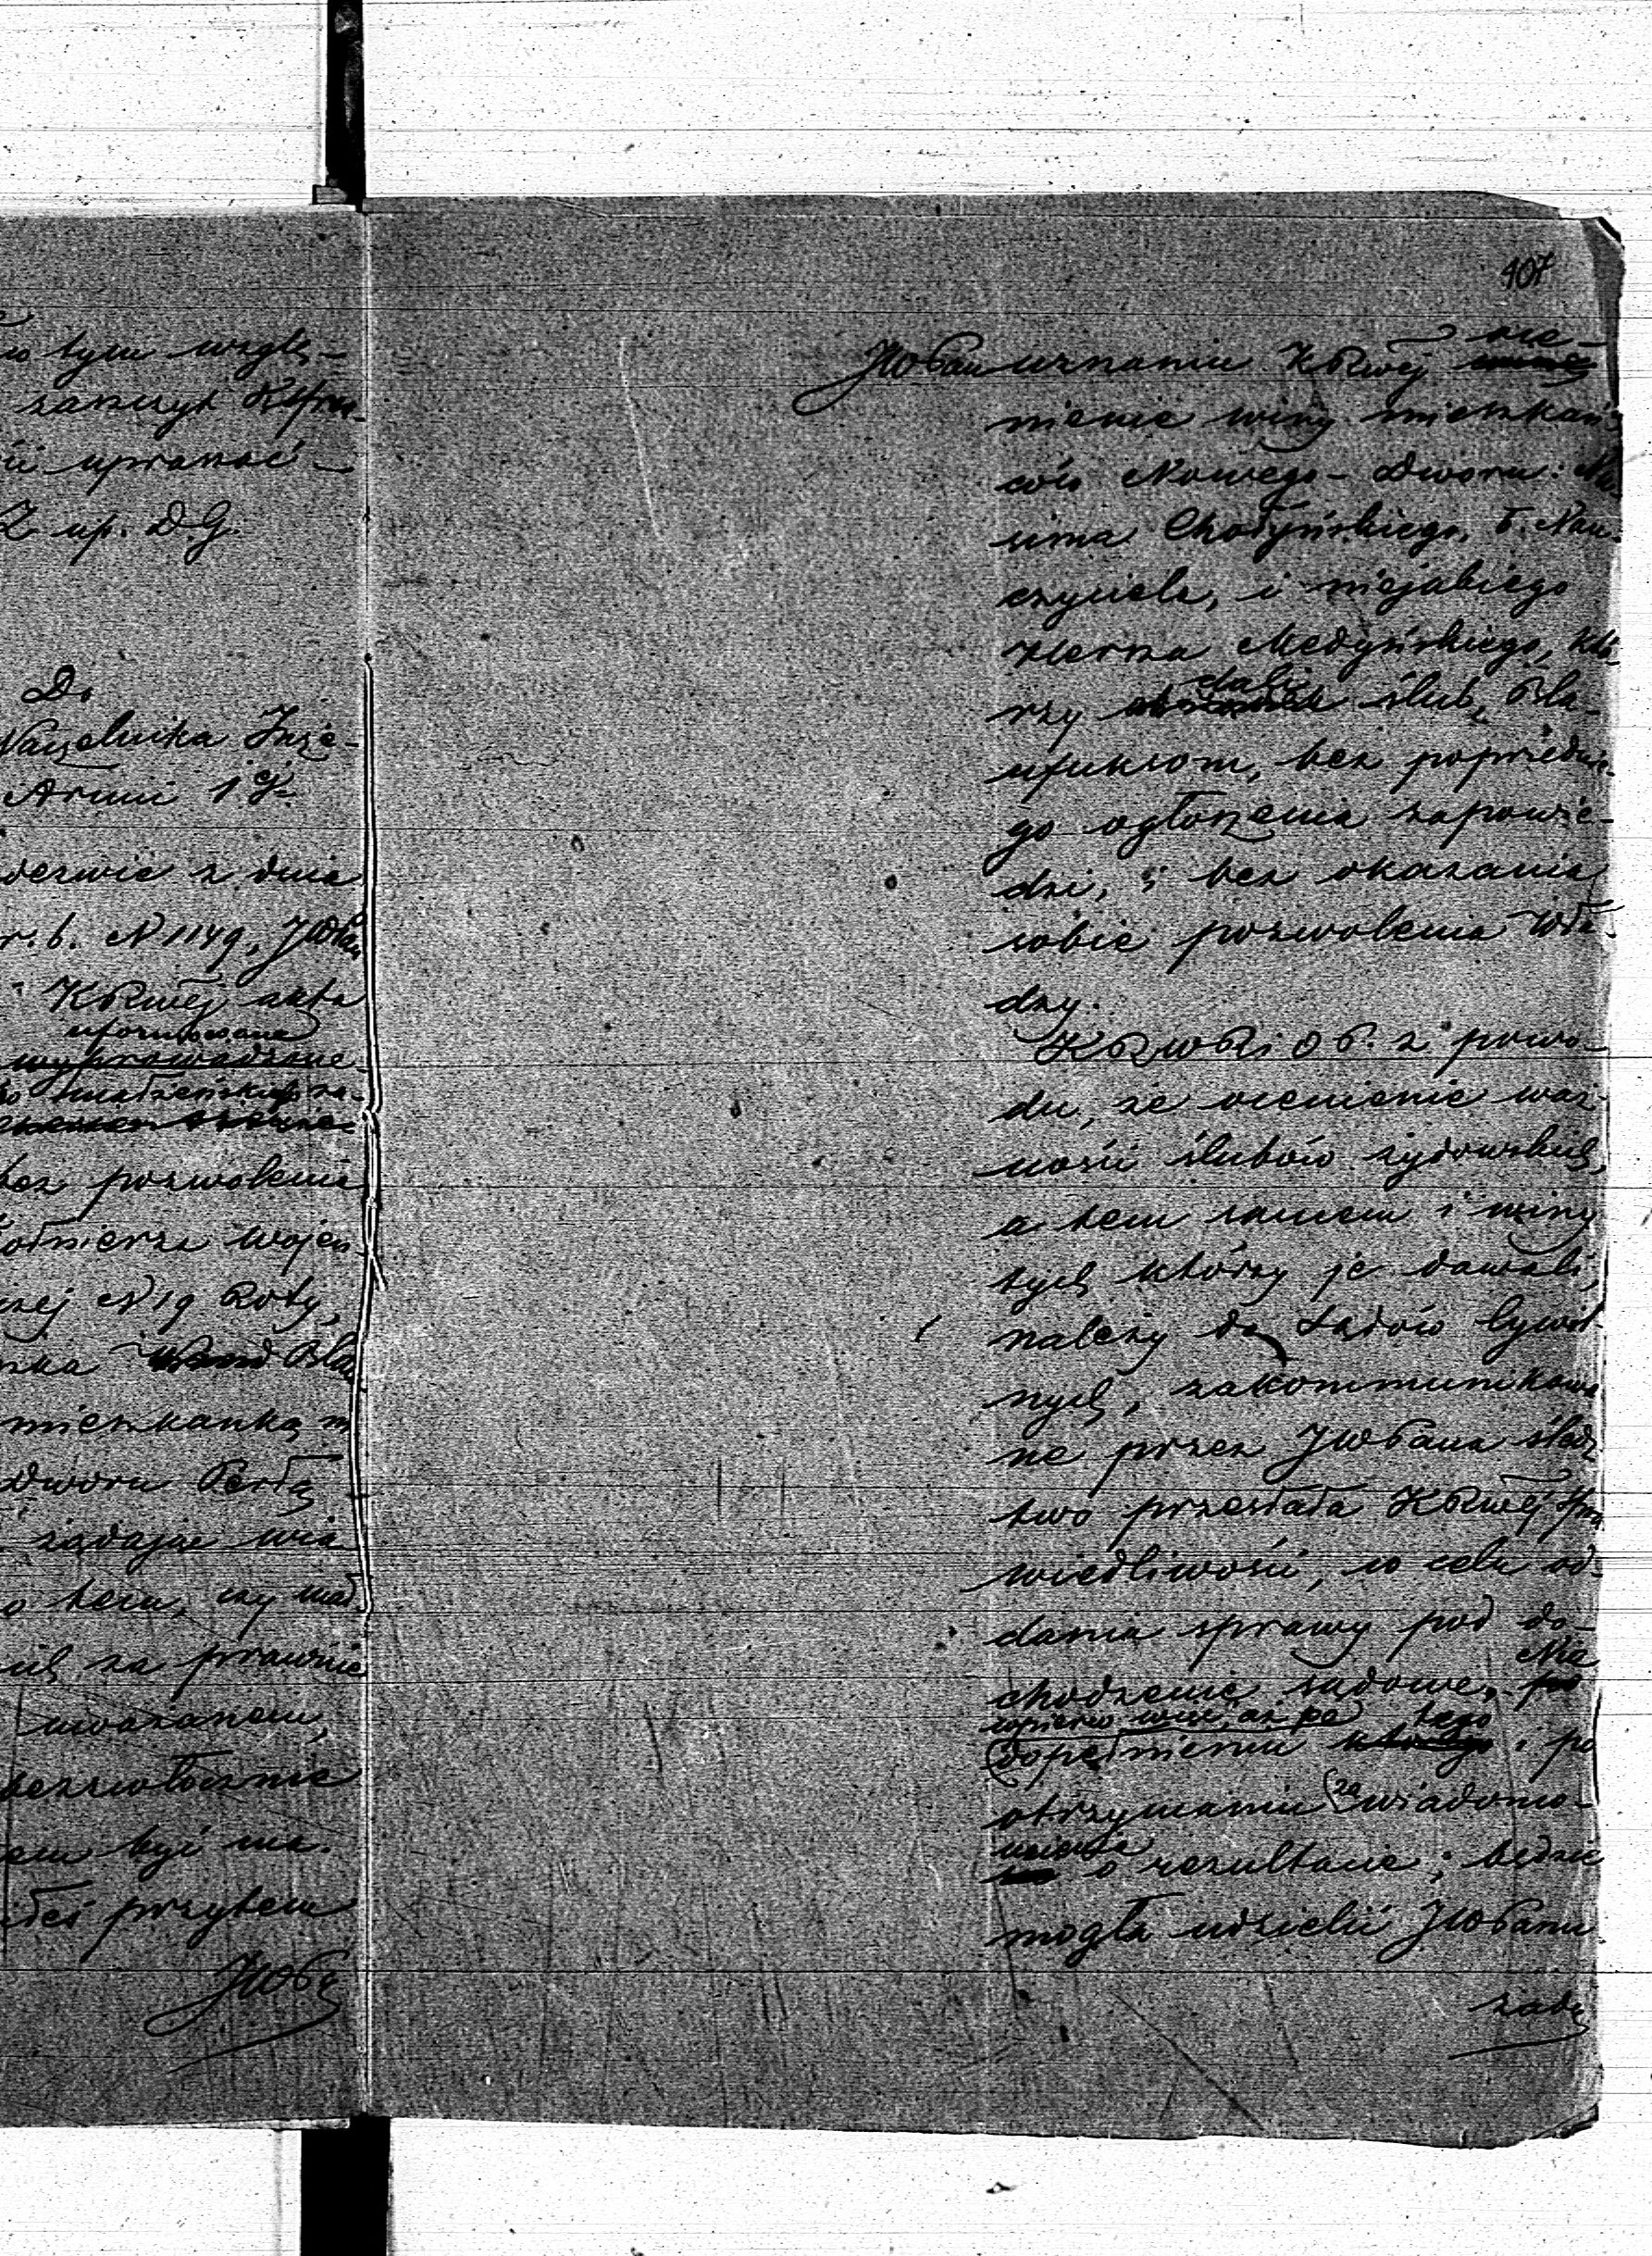 w tym wzglę-
zaszczyt KRSpra-
upraszać —
Z up. D. G.
Do
Naczelnika Inże-
Armii 1éj
odezwie z dnia
r. b. N 1149, JWPan
KRWéj akta
uformowane
wyprowadzone
małżeńskich za-
bez pozwolenia
żołnierza wojen-
N 19 Roty,
Bla
mieszkanką m
Dworu Perlą
żądając wia
o tem, czy mał
za prawnie
uważanem,
bezzwłocznie
być ma.
przytem
JWPa
107
JWPan uznaniu KRWéj oce-
nienie winy mieszkań-
ców Nowego-Dworu: Nu
Chotyńskiego, b. Nau-
czyciela, i niejakiego
Herza Medyńskiego, któ-
rzy dali ślub, Bla-
ufuksom, bez poprzednie-
go ogłoszenia zapowie-
dzi, i bez okazania
sobie pozwolenia Wła-
dzy.
KRWRiOP. z powo-
du, że ocenienie waż-
ności ślubów żydowskich,
a tem samem i winy
tych którzy je dawali,
należy do Sądów Cywil-
nych, zakommunikowa
ne przez JWPana śledz
two przesłała KRWéj Spra
wiedliwości, w celu od-
dania sprawy pod do-
chodzenie sądowe. Na
wpierw więc, aż po tego
dopełnieniu i po
otrzymaniu zawiadomo-
mienia o rezultacie; będzie
mogła udzielić JWPanu
żąda